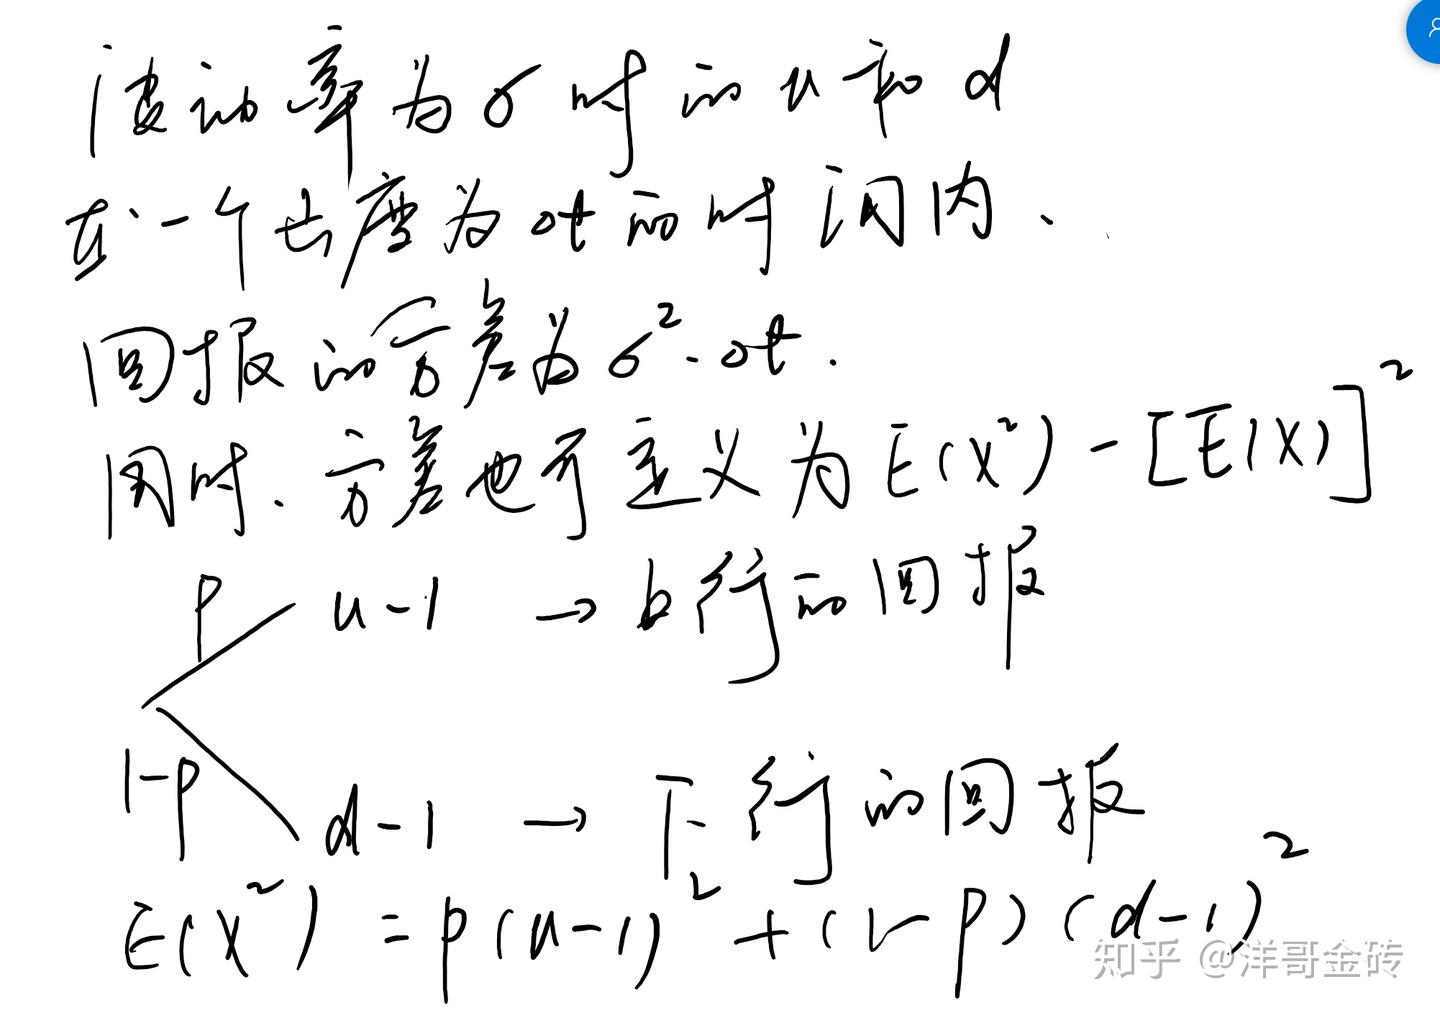 波动率为σ时的u和d
在一个长度为Δt的时间内、
回报的方差为σ²·Δt.
同时、方差也可定义为E(X²)-[E(X)]²
p
u-1 → 上行的回报
1-p
d-1 → 下行的回报
E(X²) = p(u-1)² + (1-p)(d-1)²
知乎 @洋哥金砖